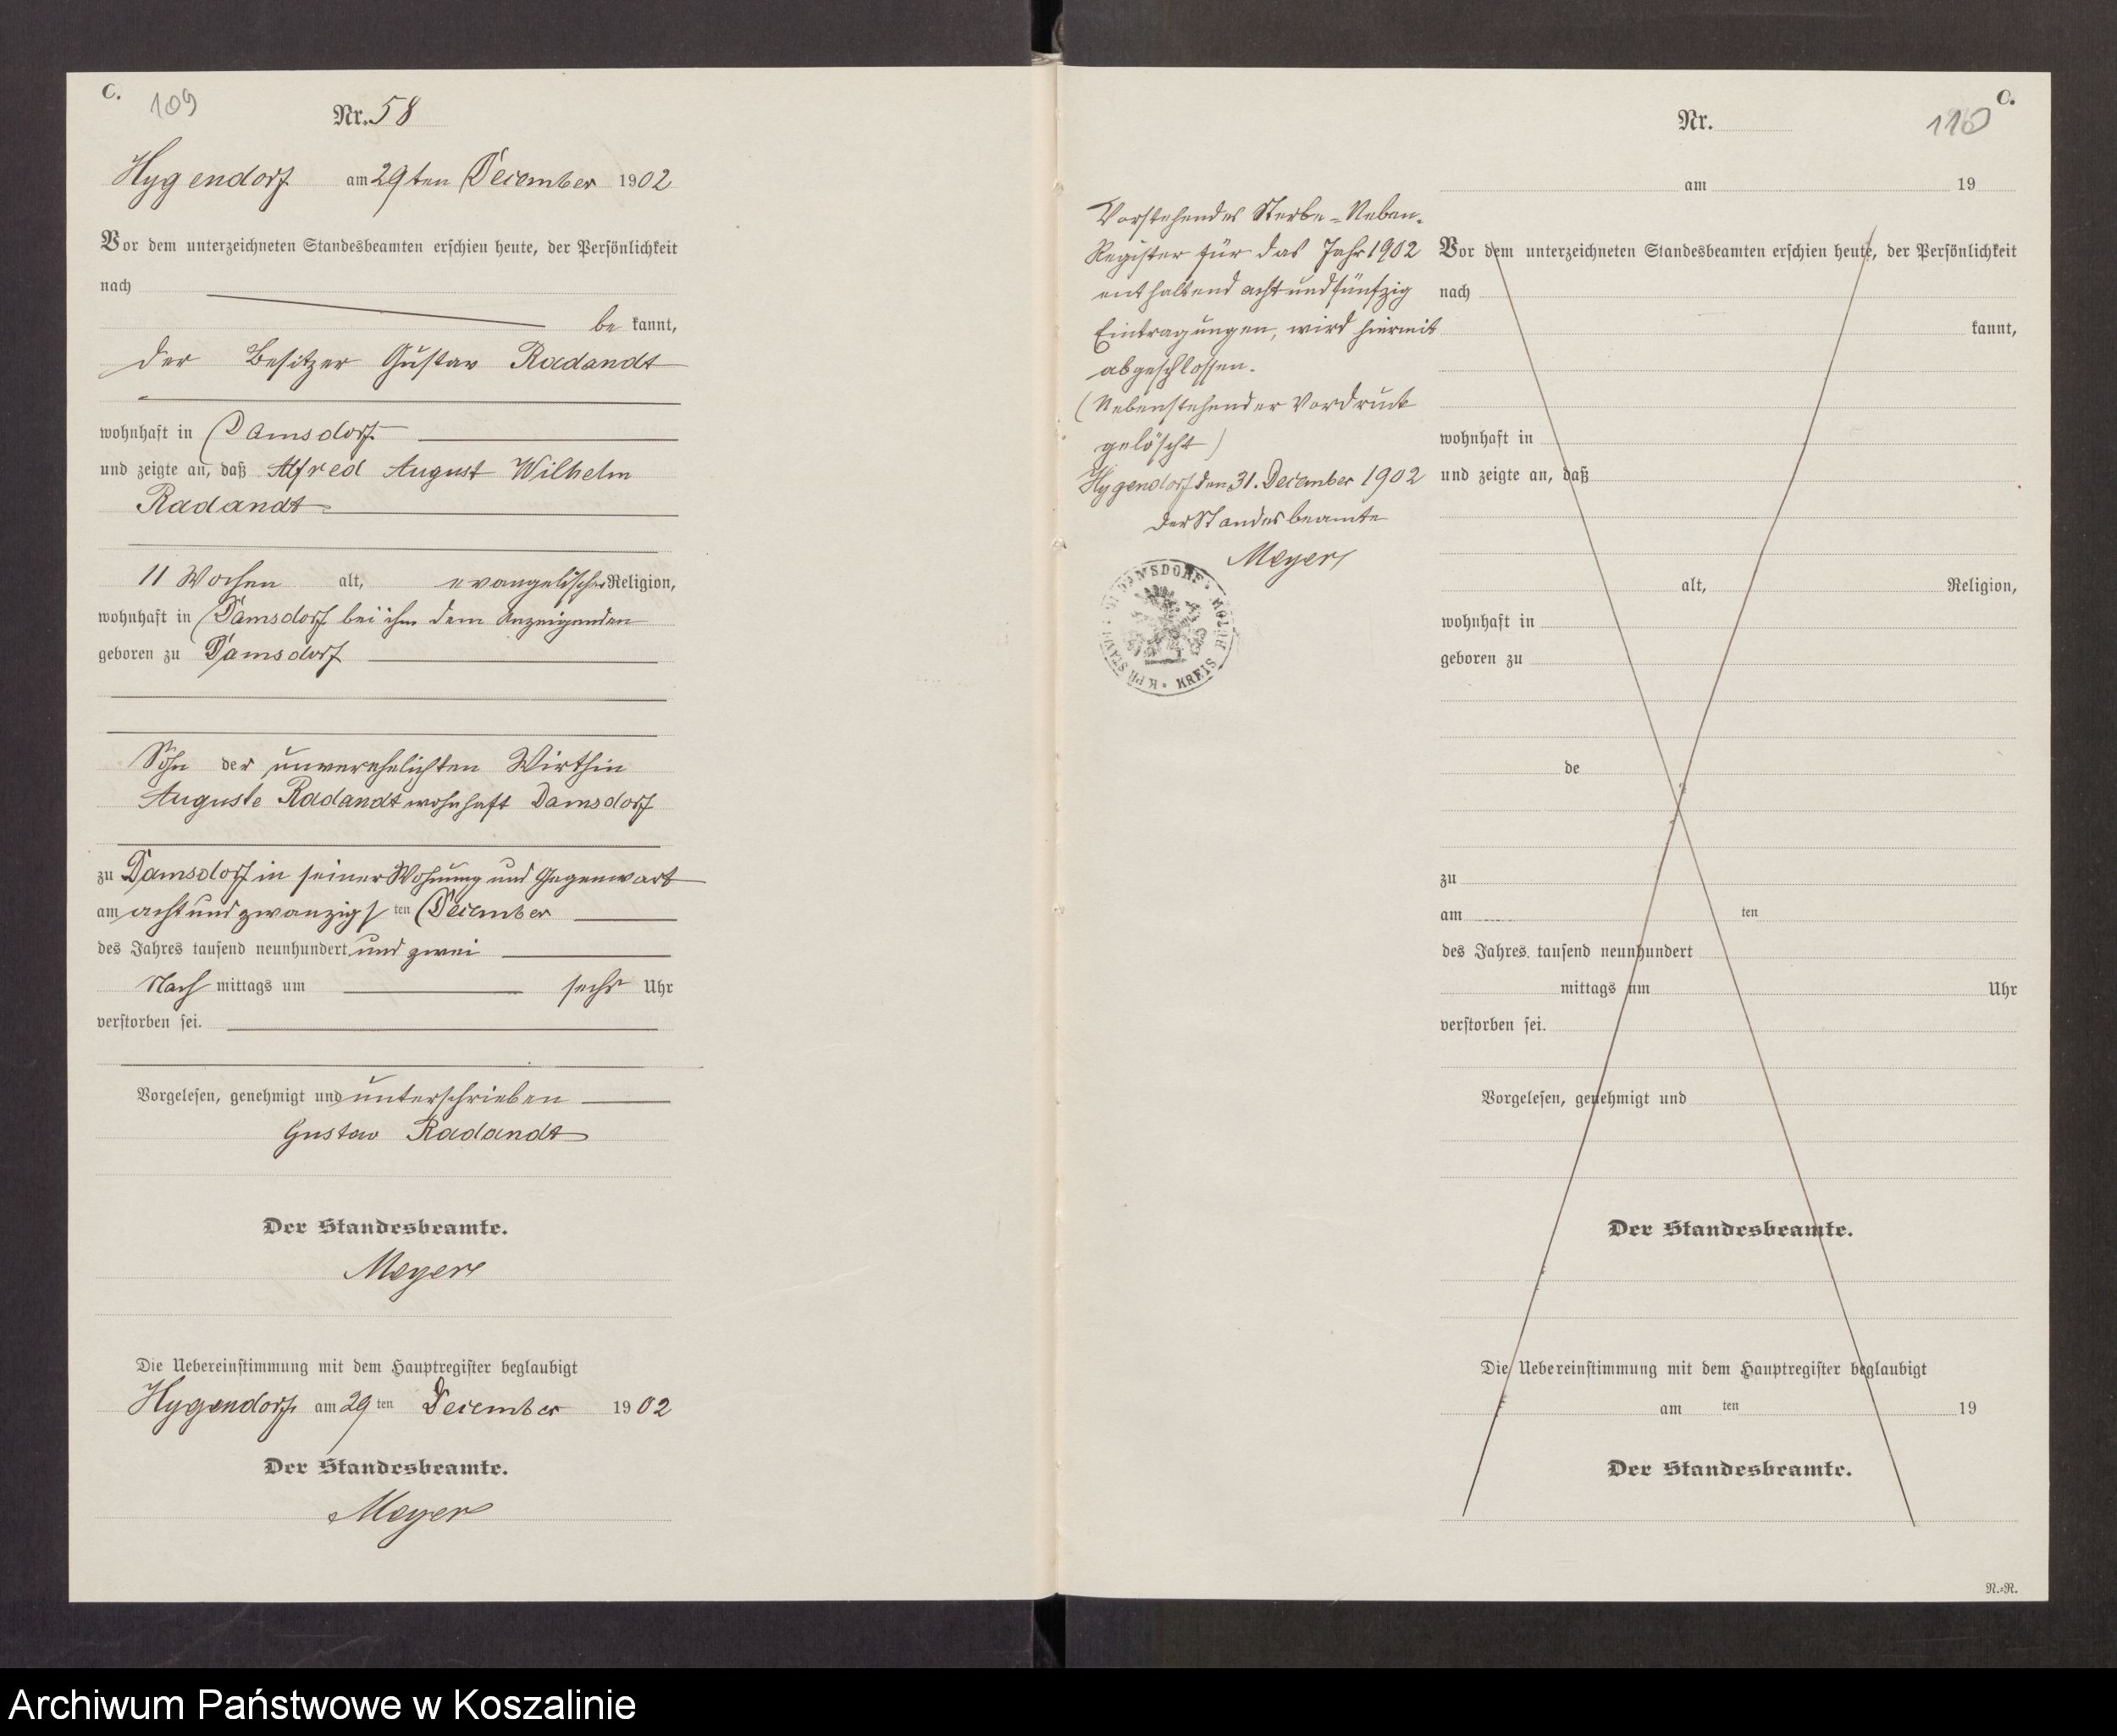 C.
109
Nr. 58
Hygendorf am 29ten December 1902
Vor dem unterzeichneten Standesbeamten erschien heute, der Persönlichkeit
nach
be kannt,
der Besitzer Gustav Radandt
wohnhaft in Damsdorf
und zeigte an, daß Alfred August Wilhelm
Radandt
11 Wochen alt, evangelischer Religion,
wohnhaft in Damsdorf bei ihm dem Anzeigenden
geboren zu Damsdorf
Sohn der unverehelichten Wirthin
Auguste Radandt wohnhaft Damsdorf
zu Damsdorf in seiner Wohnung und Gegenwart
am achtundzwanzigsten December
des Jahres tausend neunhundert und zwei
Nach mittags um sechs Uhr
verstorben sei.
Vorgelesen, genehmigt und unterschrieben
Gustav Radandt
Der Standesbeamte.
Meyer
Die Uebereinstimmung mit dem Hauptregister beglaubigt
Hygendorf am 29 ten December 1902
Der Standesbeamte.
Meyer
Vorstehendes Sterbe-Neben-
Register für das Jahr 1902
enthaltend achtundfünfzig
Eintragungen, wird hiermit
abgeschlossen.
(Nebenstehender Vordruck
gelöscht)
Hygendorf den 31. December 1902
Der Standesbeamte
Meyer
DAMSDORF
KREIS
C.
110
Nr.
am 19
Vor dem unterzeichneten Standesbeamten erschien heute, der Persönlichkeit
nach
kannt,
wohnhaft in
und zeigte an, daß
alt, Religion,
wohnhaft in
geboren zu
de
zu
am ten
des Jahres tausend neunhundert
mittags um Uhr
verstorben sei.
Vorgelesen, genehmigt und
Der Standesbeamte.
Die Uebereinstimmung mit dem Hauptregister beglaubigt
am ten 19
Der Standesbeamte.
N.-R.
Archiwum Państwowe w Koszalinie